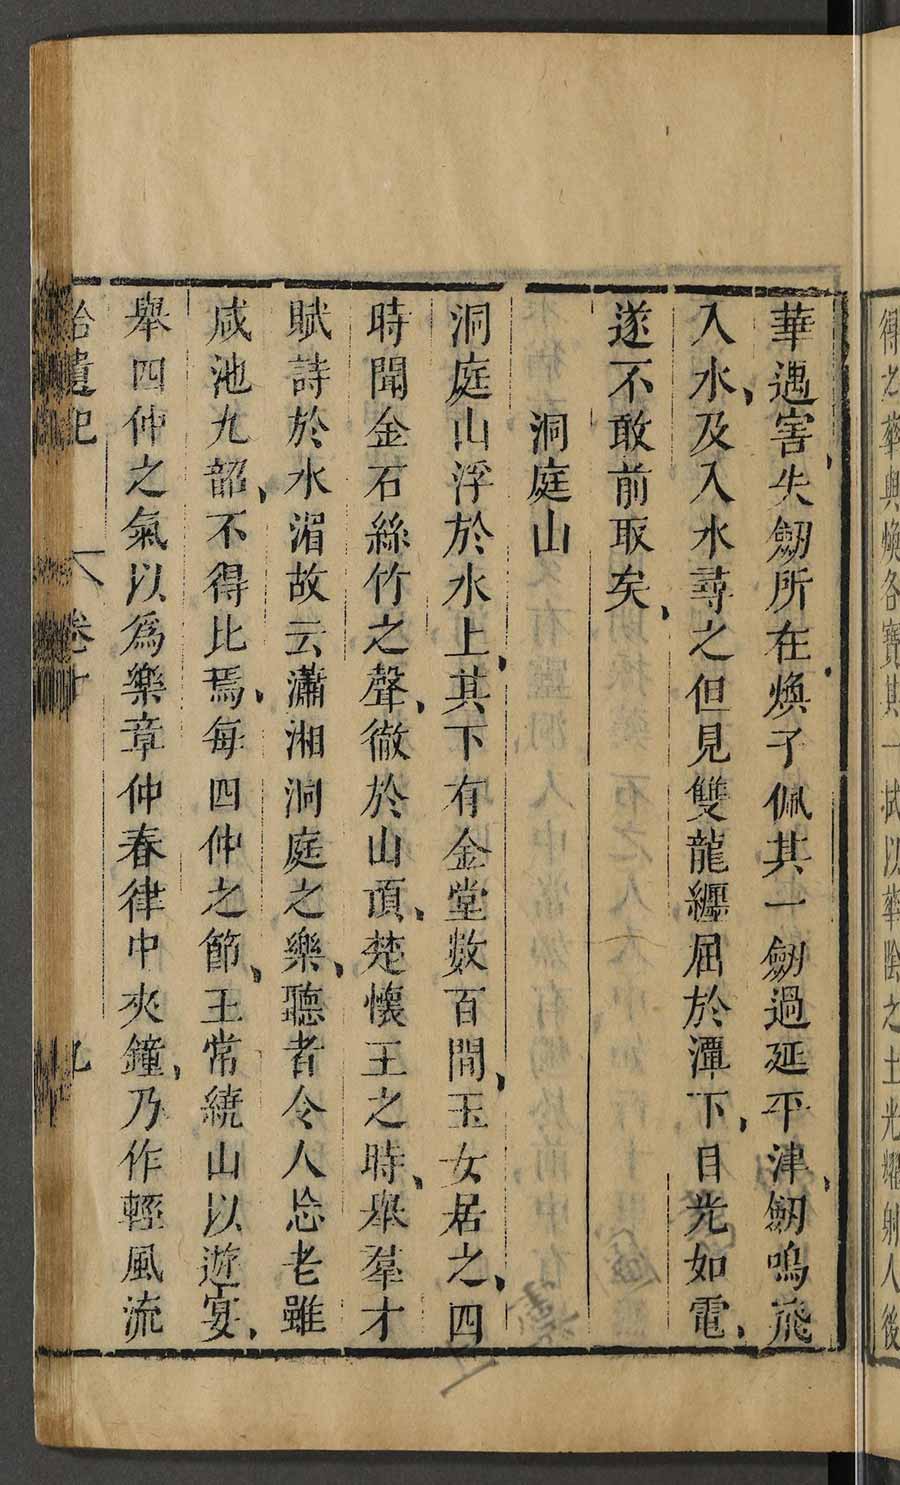 得之華與煥各寶其一拭以華陰之土光耀射人後
華遇害失劒所在煥子佩其一劒過延平津劒鳴飛
入水及入水尋之但見雙龍纏屈於潭下目光如電
遂不敢前取矣
洞庭山
洞庭山浮於水上其下有金堂數百間玉女居之四
時聞金石絲竹之聲徹於山頂楚懷王之時舉羣才
賦詩於水湄故云瀟湘洞庭之樂聽者令人忘老雖
咸池九韶不得比焉每四仲之節王常繞山以遊宴
舉四仲之氣以爲樂章仲春律中夾鐘乃作輕風流
拾遺記 卷十 九